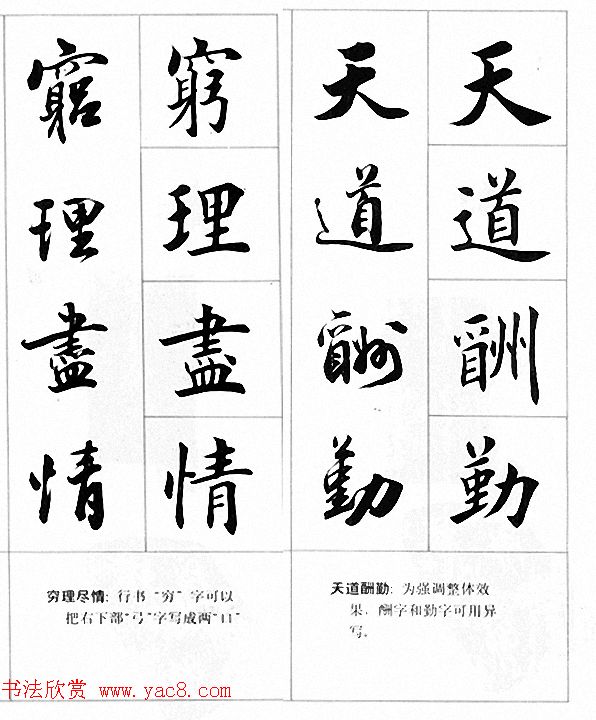 天道酬勤
天道酬勤
窮理盡情
窮理盡情
天道酬勤:为强调整体效
果,酬字和勤字可用异
写。
穷理尽情:行书“穷”字可以
把右下部“弓”字写成两“口”
书法欣赏 www.yac8.com